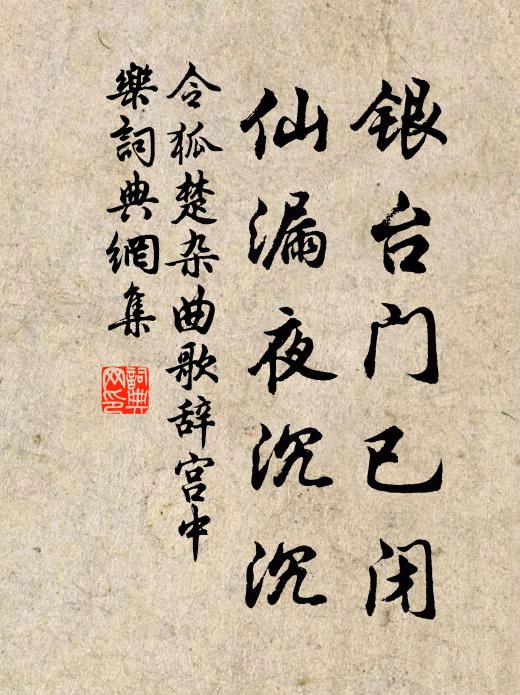 银台门已闭
仙漏夜沉沉
令狐楚杂曲歌辞宫中
樂詞典網集
詞典
网印